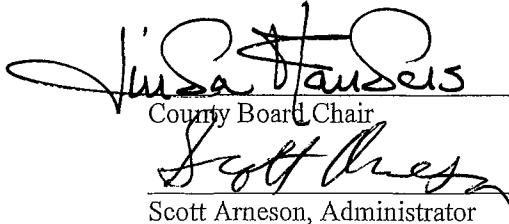 County Board Chair
Scott Arneson
Scott Arneson, Administrator